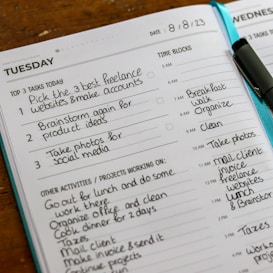 TUESDAY
DATE: 8/8/23
WEDNES
TOP 3 TASKS TODAY
TIME BLOCKS
1 Pick the 3 best freelance
websites & make accounts
2 Brainstorm again for
product ideas
3 Take photos for
social media
Breakfast
walk
Organize
clean
Take photos
Mail client
invoice
freelance
websites
lunch
& Brainstor
Taxes
Workou
OTHER ACTIVITIES / PROJECTS WORKING ON:
Go out for lunch and do some
work there
Organize office and clean
Cook dinner for 2 days
Taxes
Mail client
make invoice & send it
Continue projects